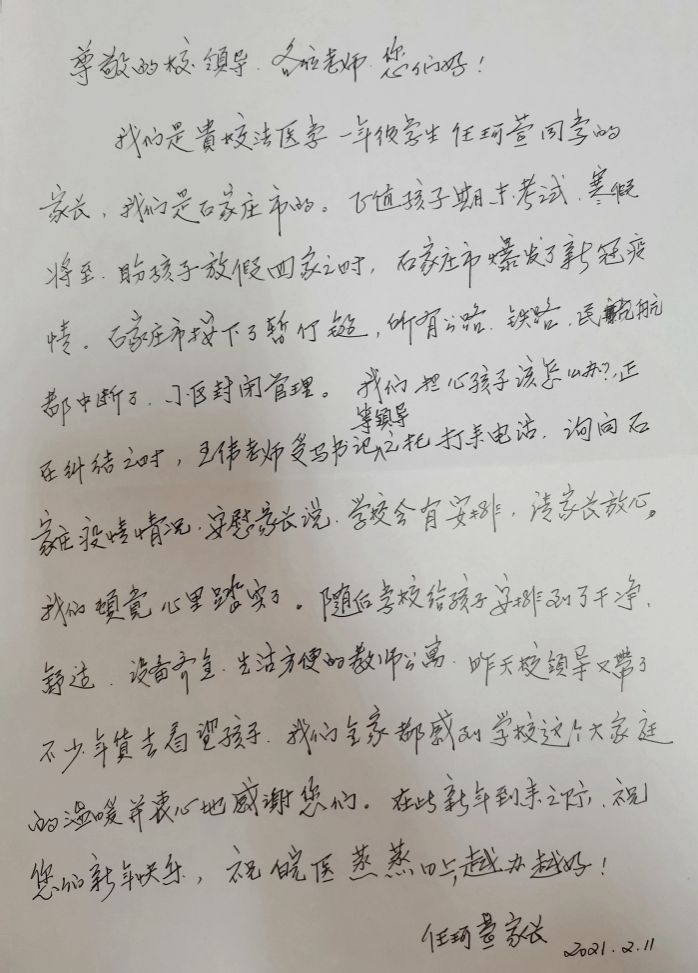 尊敬的校领导.各位老师.您们好!
我们是貴校法医学一年级学生任珂萱同学的
家长,我们是石家庄市的。正值孩子期末考试.寒假
将至.盼孩子放假回家之时,石家庄市爆发了新冠疫
情。石家庄市按下了暂停键,所有公路.铁路.民航
都中断了.小区封闭管理。我们担心孩子该怎么办?正
等领导
在纠结之时,王伟老师受马书记之托打来电话.询问石
家庄疫情情况.安慰家长说.学校会有安排,请家长放心。
我们頓竟心里踏实了。随后学校给孩子安排到了干净.
舒适.设备齐全.生活方便的教师公寓.昨天校領导又带了
不少年货去看望孩子.我们全家都感到学校这个大家庭
的温暖并衷心地感谢您们。在此新年到来之际,祝
您们新年快乐,祝皖医蒸蒸日上,越办越好!
任珂萱家长 2021.2.11